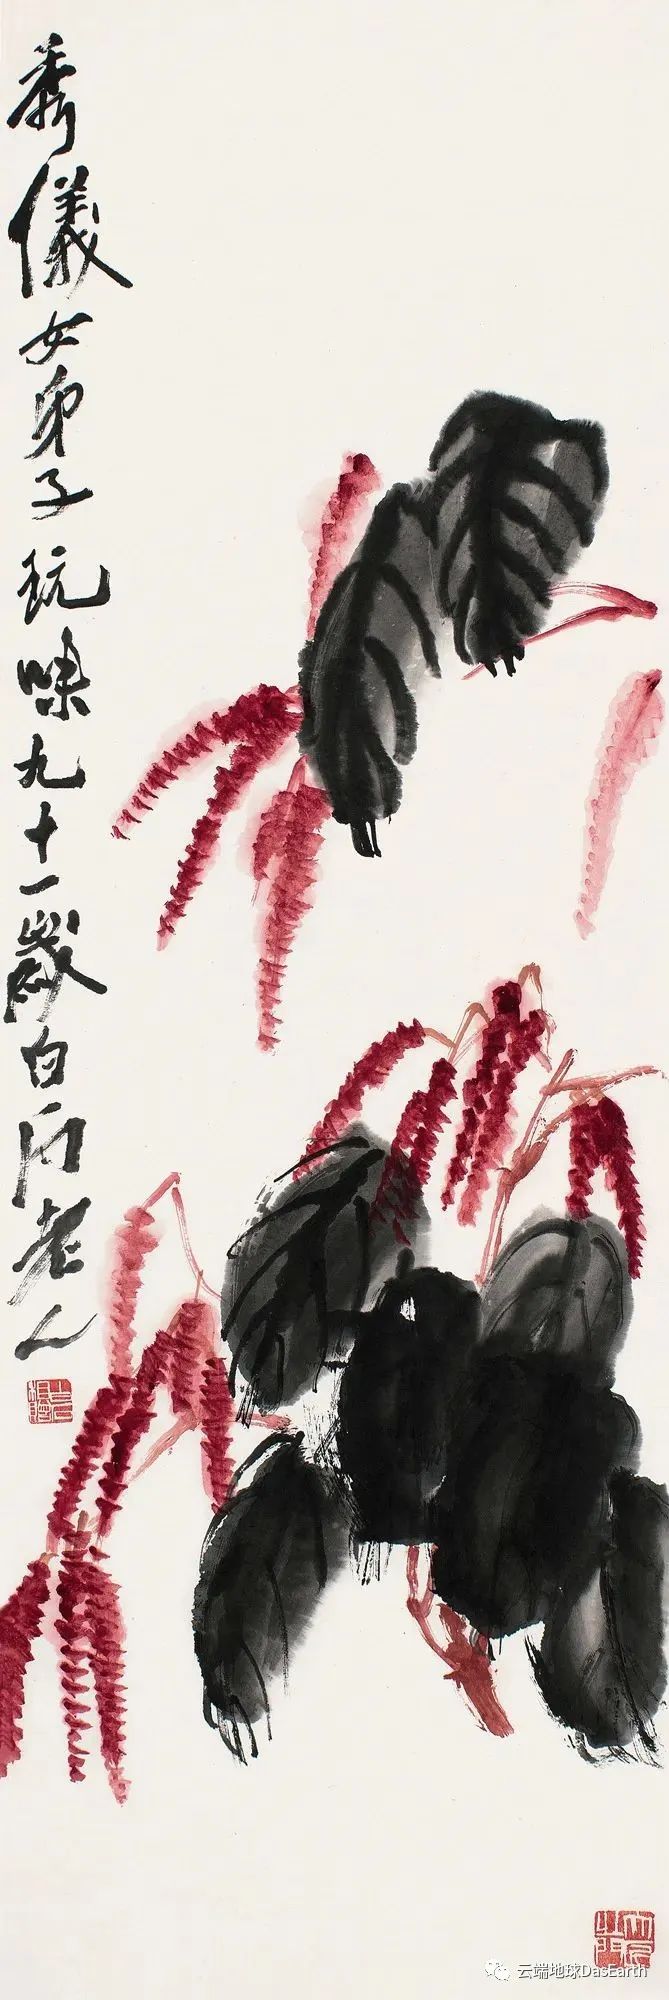 秀儀女弟子玩味九十一歲白石老人
大匠之門
云端地球DasEarth